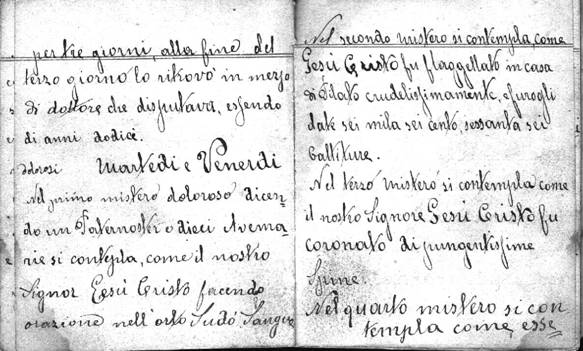 per tre giorni, alla fine del
terzo giorno lo ritrovò in mezzo
di dottore che disputava, essendo
di anni dodici.
dolorosi Martedi e Venerdi
Nel primo mistero doloroso dicen-
do un Paternostro dieci Avema-
rie si contempla, come il nostro
Signor Gesù Cristo facendo
orazione nell'orto Sudò Sangue
Nel secondo mistero si contempla, come
Gesù Cristo fu flaggellato in casa
di Pilato crudelissimamente, e furogli
date sei mila sei cento, sessanta sei
battiture.
Nel terzo mistero si contempla come
il nostro Signore Gesù Cristo fu
coronato di pungentissime
Spine.
Nel quarto mistero si con
templa come, esse